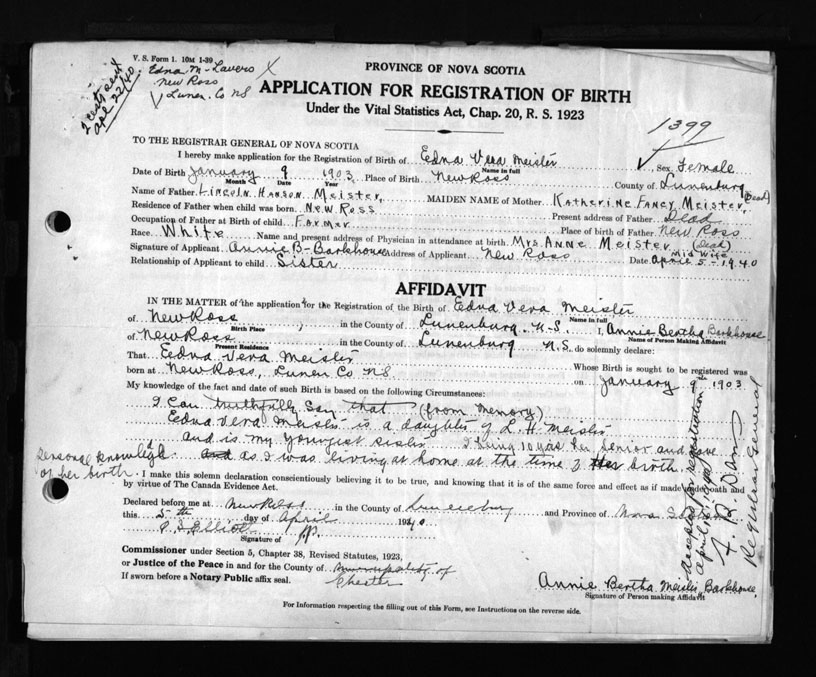 V. S. Form 1. 10M 1-39
Edna M. Lavers X
New Ross
Lunen. Co NS
2 certs sent
Apl 22/40
PROVINCE OF NOVA SCOTIA
APPLICATION FOR REGISTRATION OF BIRTH
Under the Vital Statistics Act, Chap. 20, R. S. 1923
1399
TO THE REGISTRAR GENERAL OF NOVA SCOTIA
I hereby make application for the Registration of Birth of Edna Vera Meister Sex Female
Name in full
Date of Birth January 9 1903 Place of Birth New Ross County of Lunenburg
Month Date Year
Name of Father Lincoln Hanson Meister, MAIDEN NAME of Mother Katherine Fancy Meister, (Dead)
Residence of Father when child was born New Ross Present address of Father Dead
Occupation of Father at Birth of child Farmer Place of birth of Father New Ross
Race White Name and present address of Physician in attendance at birth Mrs. Anne Meister (Dead)
Mid Wife
Signature of Applicant Annie B- Barkhouse Address of Applicant New Ross Date April 5 - 1940
Relationship of Applicant to child Sister
AFFIDAVIT
IN THE MATTER of the application for the Registration of the Birth of Edna Vera Meister
Name in full
of New Ross, in the County of Lunenburg N.S. I, Annie Bertha Barkhouse
Birth Place Name of Person Making Affidavit
of New Ross in the County of Lunenburg N.S. do solemnly declare:
Present Residence
That Edna Vera Meister Whose Birth is sought to be registered was
born at New Ross, Lunen Co NS. on January 9th 1903
My knowledge of the fact and date of such Birth is based on the following Circumstances:
I Can truthfully Say that (from memory)
Edna Vera Meister is a daughter of L. H. Meister
and is my youngest sister I being 10 yrs her senior and have
personal knowledge and as I was living at home at the time of her birth.
of her birth.
I make this solemn declaration conscientiously believing it to be true, and knowing that it is of the same force and effect as if made under oath and
by virtue of The Canada Evidence Act.
Declared before me at New Ross in the County of Lunenburg and Province of Nova
this 5th day of April 1940
Signature of J.P.
Commissioner under Section 5, Chapter 38, Revised Statutes, 1923,
or Justice of the Peace in and for the County of municipality of
Chester
If sworn before a Notary Public affix seal.
Annie Bertha Meister Barkhouse
Signature of Person making Affidavit
For Information respecting the filling out of this Form, see Instructions on the reverse side.
Accepted for registration
Registrar General